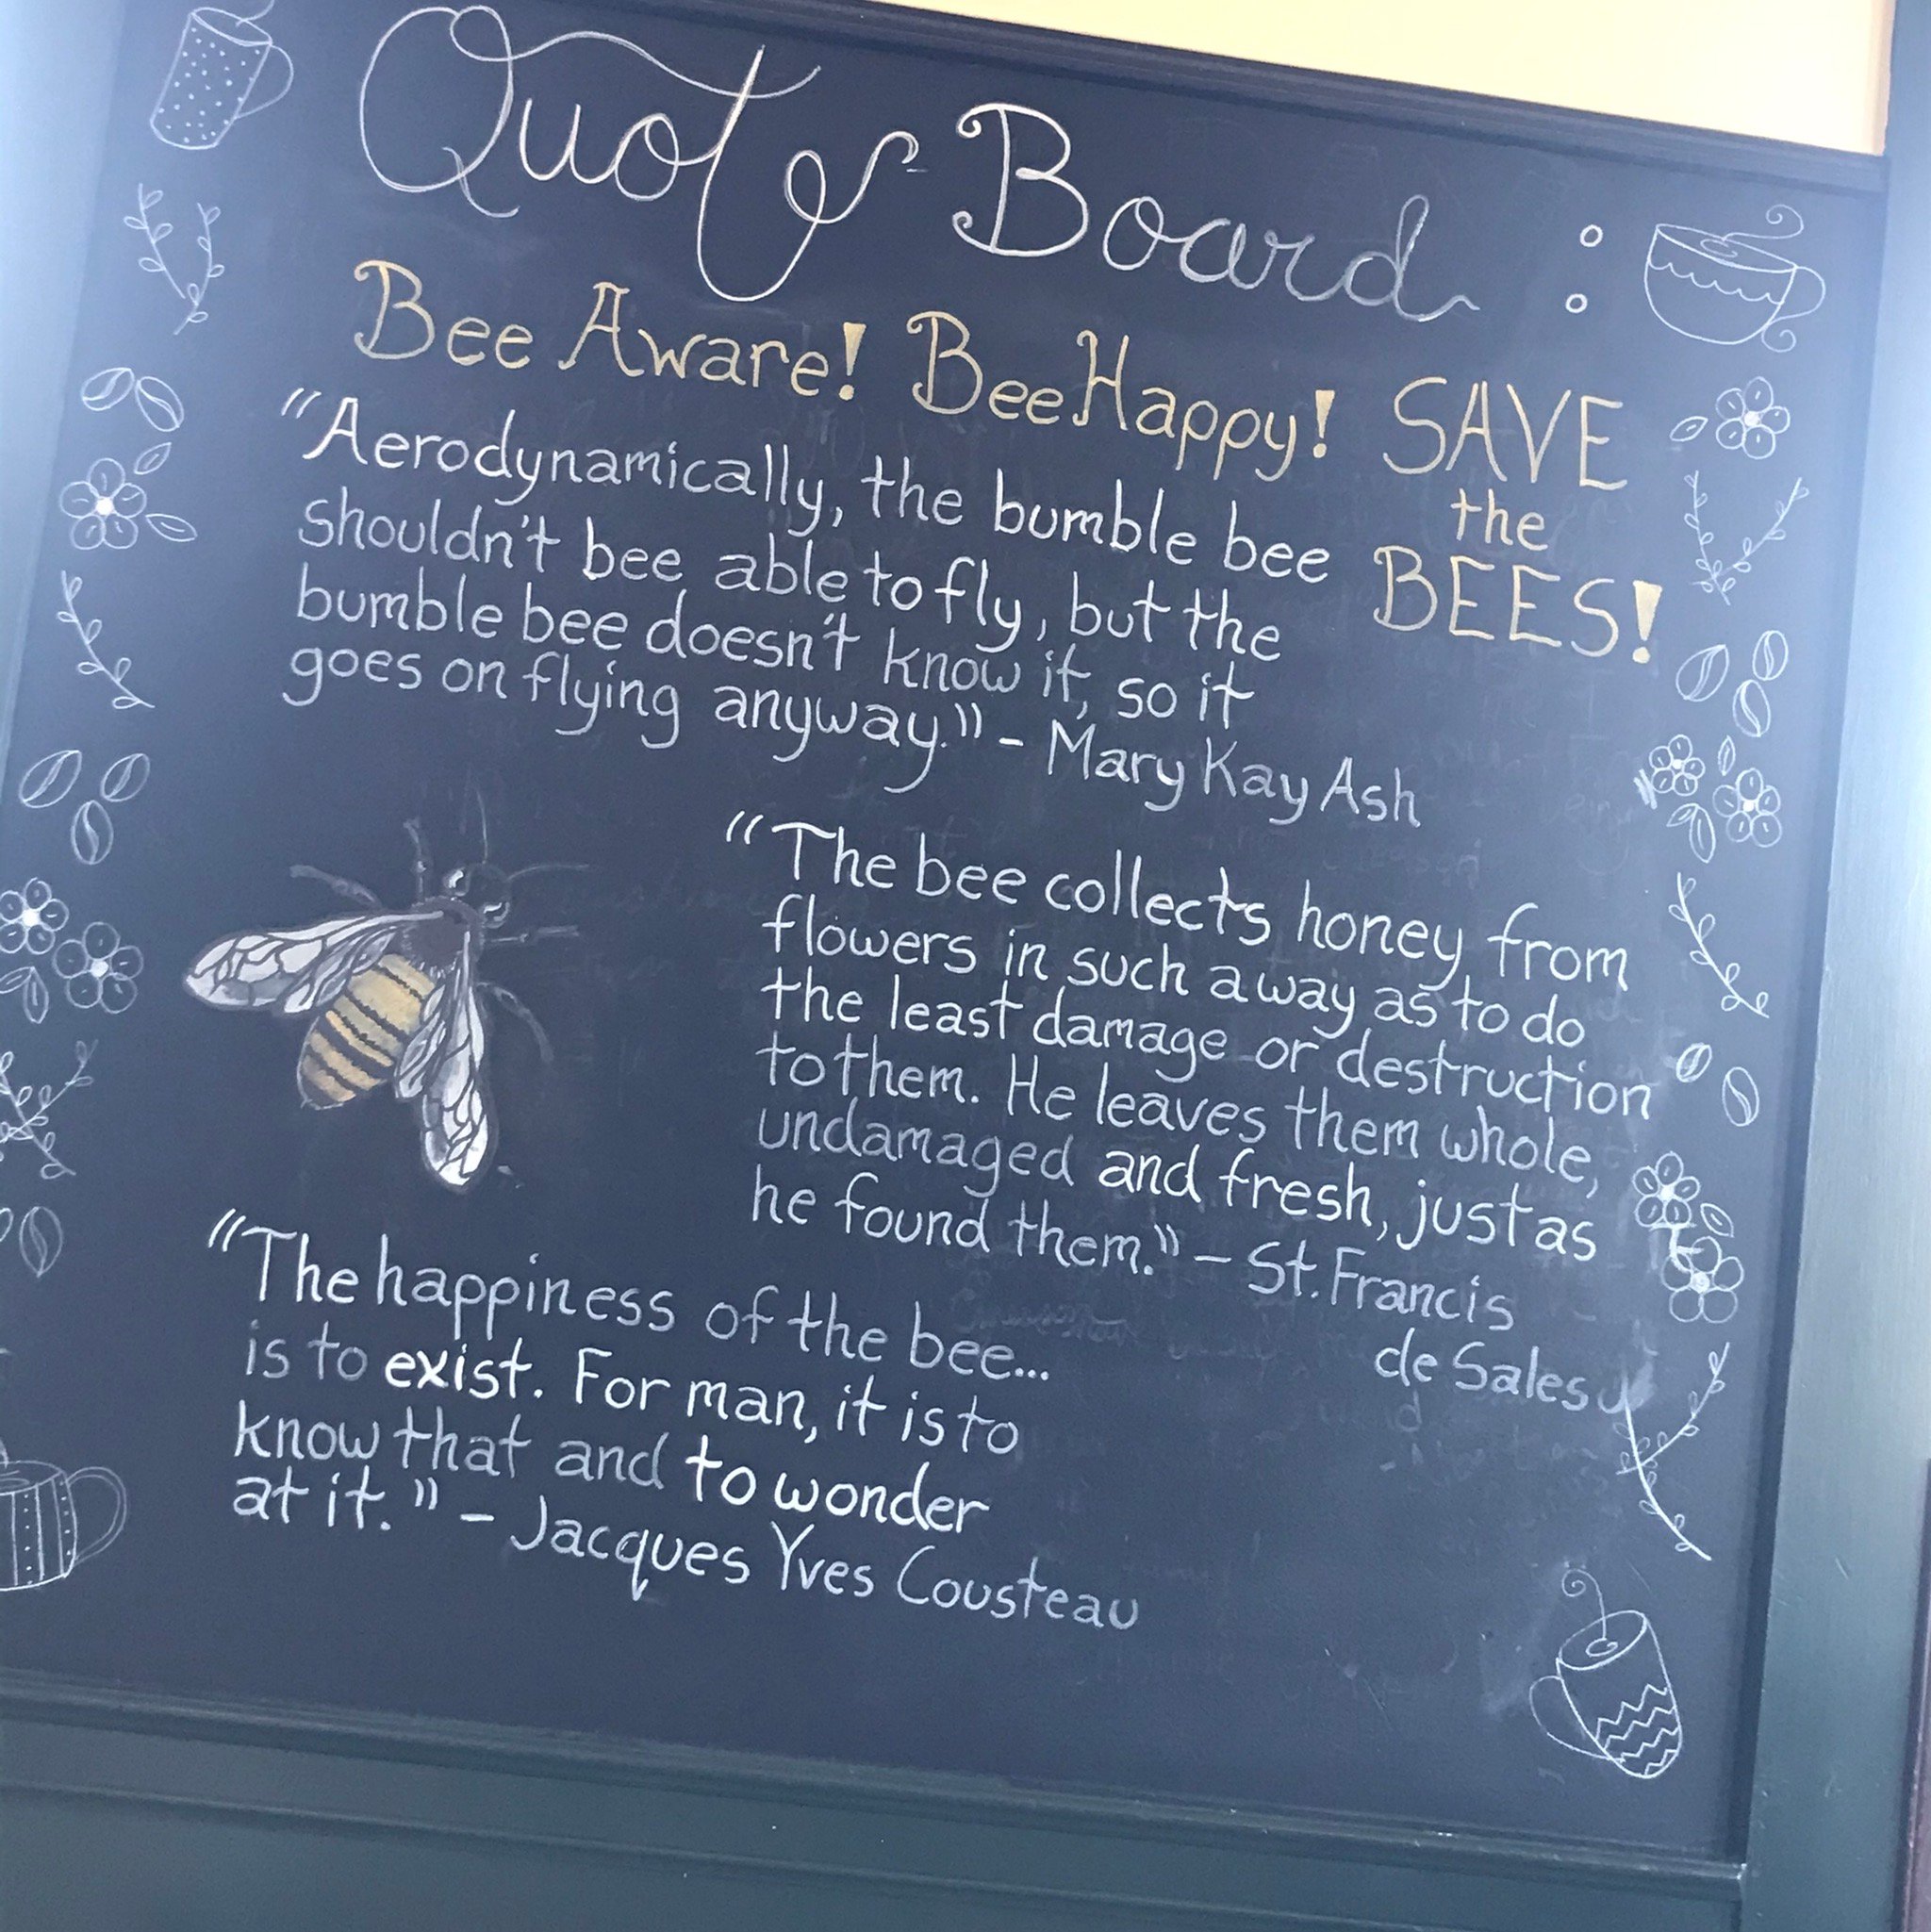 Quote Board :
Bee Aware! Bee Happy! SAVE
the
BEES!
"Aerodynamically, the bumble bee
shouldn't bee able to fly, but the
bumble bee doesn't know it, so it
goes on flying anyway." - Mary Kay Ash
"The bee collects honey from
flowers in such a way as to do
the least damage or destruction
to them. He leaves them whole,
undamaged and fresh, just as
he found them." - St. Francis
de Sales
"The happiness of the bee...
is to exist. For man, it is to
know that and to wonder
at it." - Jacques Yves Cousteau